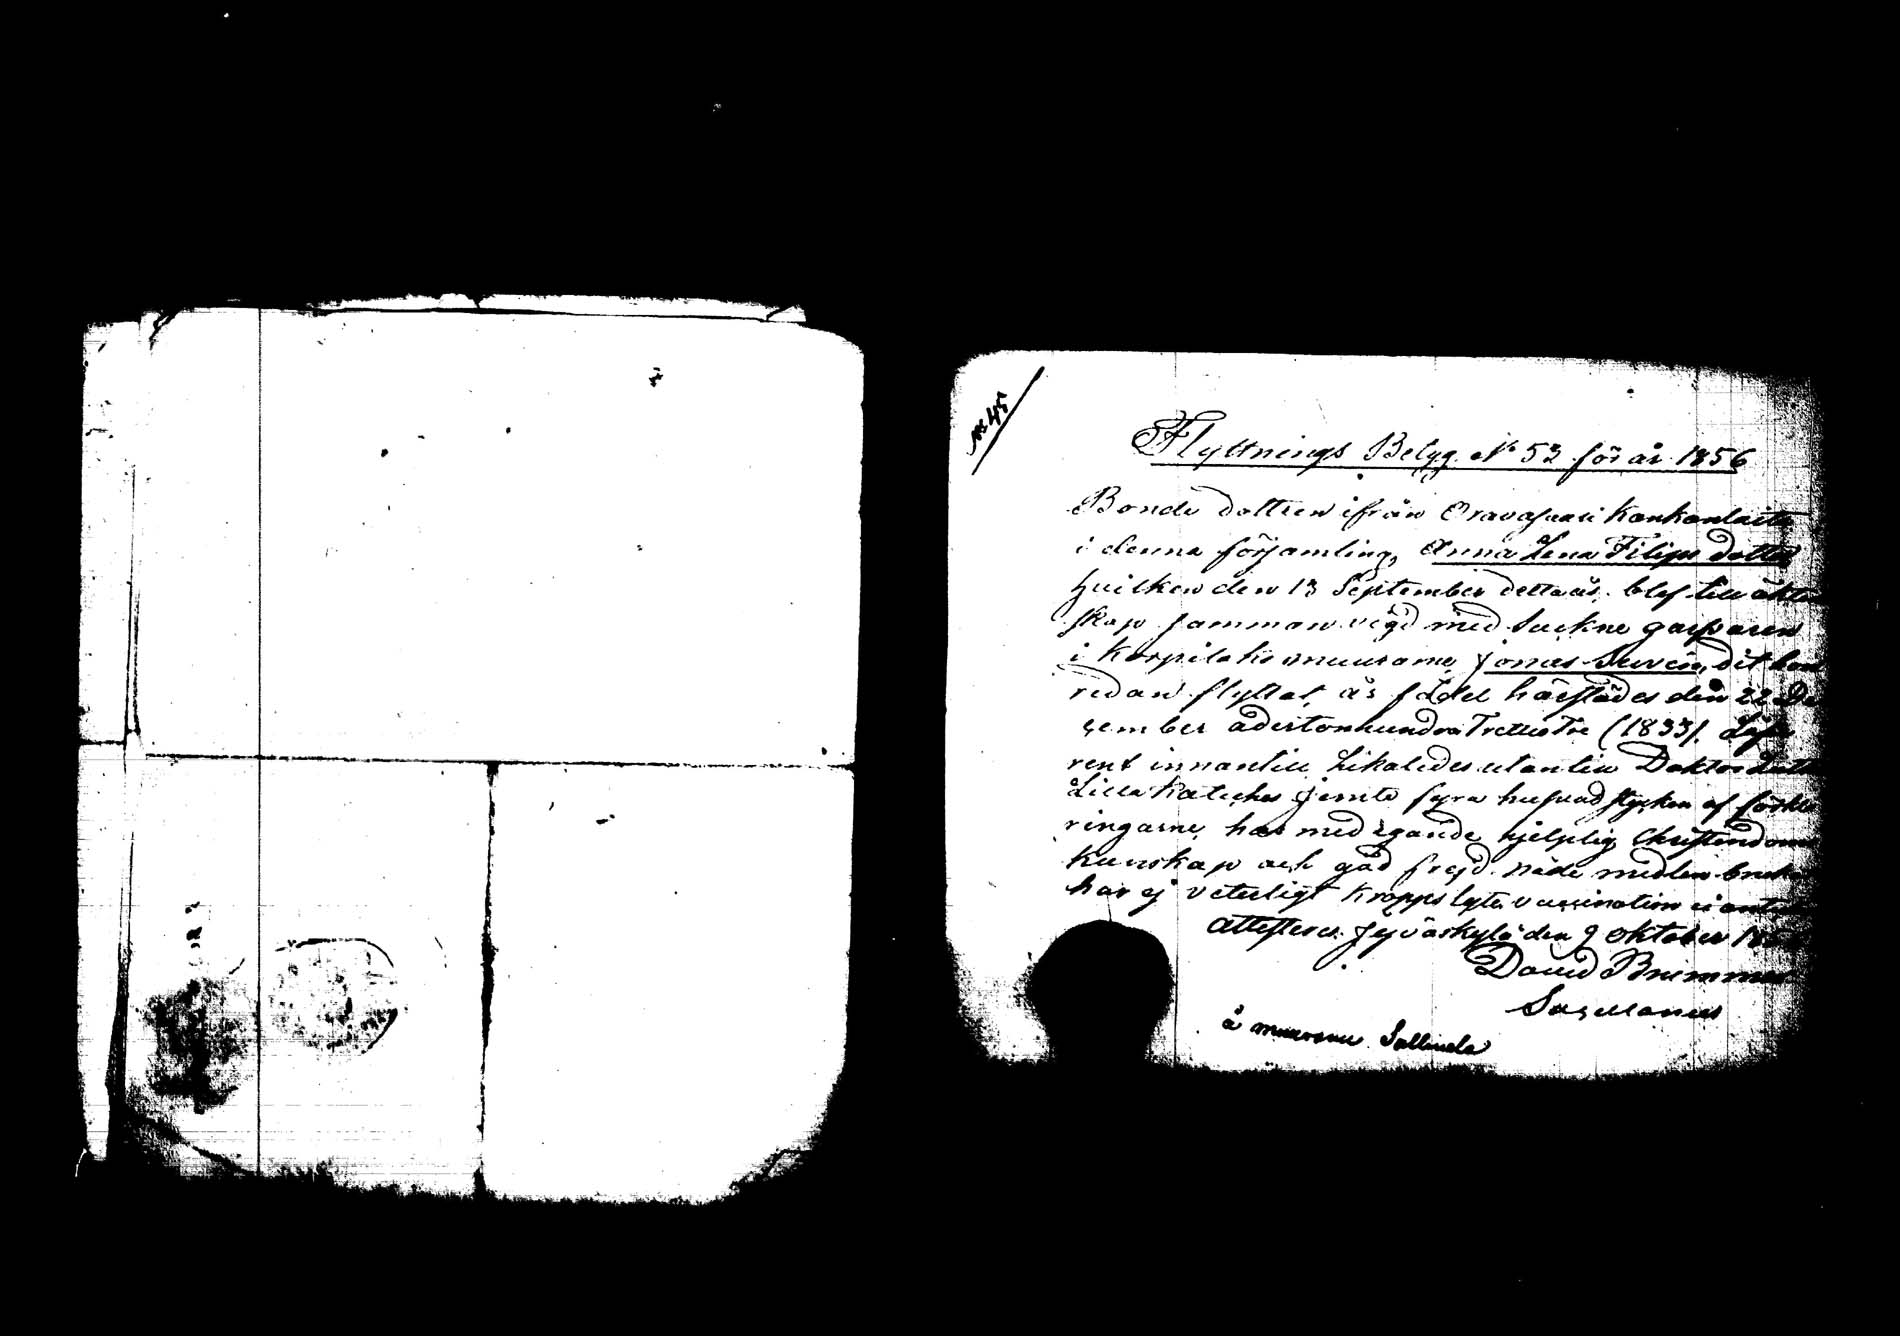 No 45
Flyttnings Betyg No 53 för år 1856
Bonde dottren ifrån Oravasaari Kankanlaita
i denna församling, Anna Lena Filips dotter
hvilken den 13 September detta år blef till äkten
skap samman vigd med Suckne garfvaren
i Korpilaks muurame, Jonas Sirvén, dit hon
redan flyttat, är född härstädes den 22 De
sember adertonhundra Trettio Tre (1833). Läser
rent innantill, likaledes utantill Doktor Luth
Lilla Kateches jemte fyra hufvud stycken af förkla
ringarne, har med egande hjelplig Christendoms
kunskap och god frejd. nåde medlen bruka
har ej veterligt kropps lyte vaccination ei ant
Attesterar. Jyväskylä den 9 oktober 1856
David Brummer
Sacellanus
å muurame Sallinela